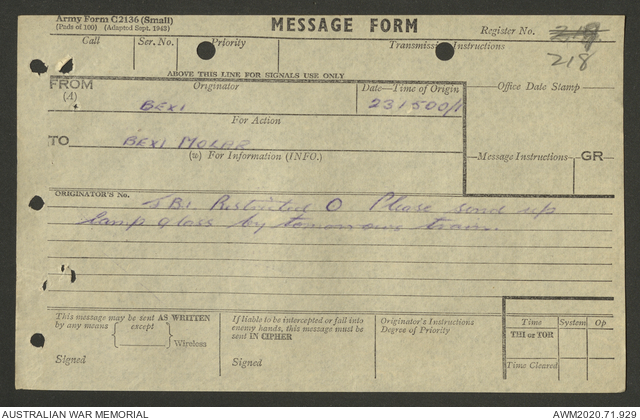 Army Form C2136 (Small)
(Pads of 100) (Adapted Sept. 1943)
MESSAGE FORM
Register No. 219
218
Call
Ser. No.
Priority
Transmission Instructions
ABOVE THIS LINE FOR SIGNALS USE ONLY
FROM
(A)
Originator
Date—Time of Origin
Office Date Stamp
BEXI
231500/1
For Action
TO
BEXI MOLAR
(w) For Information (INFO.)
Message Instructions
GR
ORIGINATOR'S No.
Restricted O. Please send up
lamp glass by tomorrows train.
This message may be sent AS WRITTEN
by any means except
Wireless
Signed
If liable to be intercepted or fall into
enemy hands, this message must be
sent IN CIPHER
Signed
Originator's Instructions
Degree of Priority
Time
System
Op
THI or TOR
Time Cleared
AUSTRALIAN WAR MEMORIAL
AWM2020.71.929